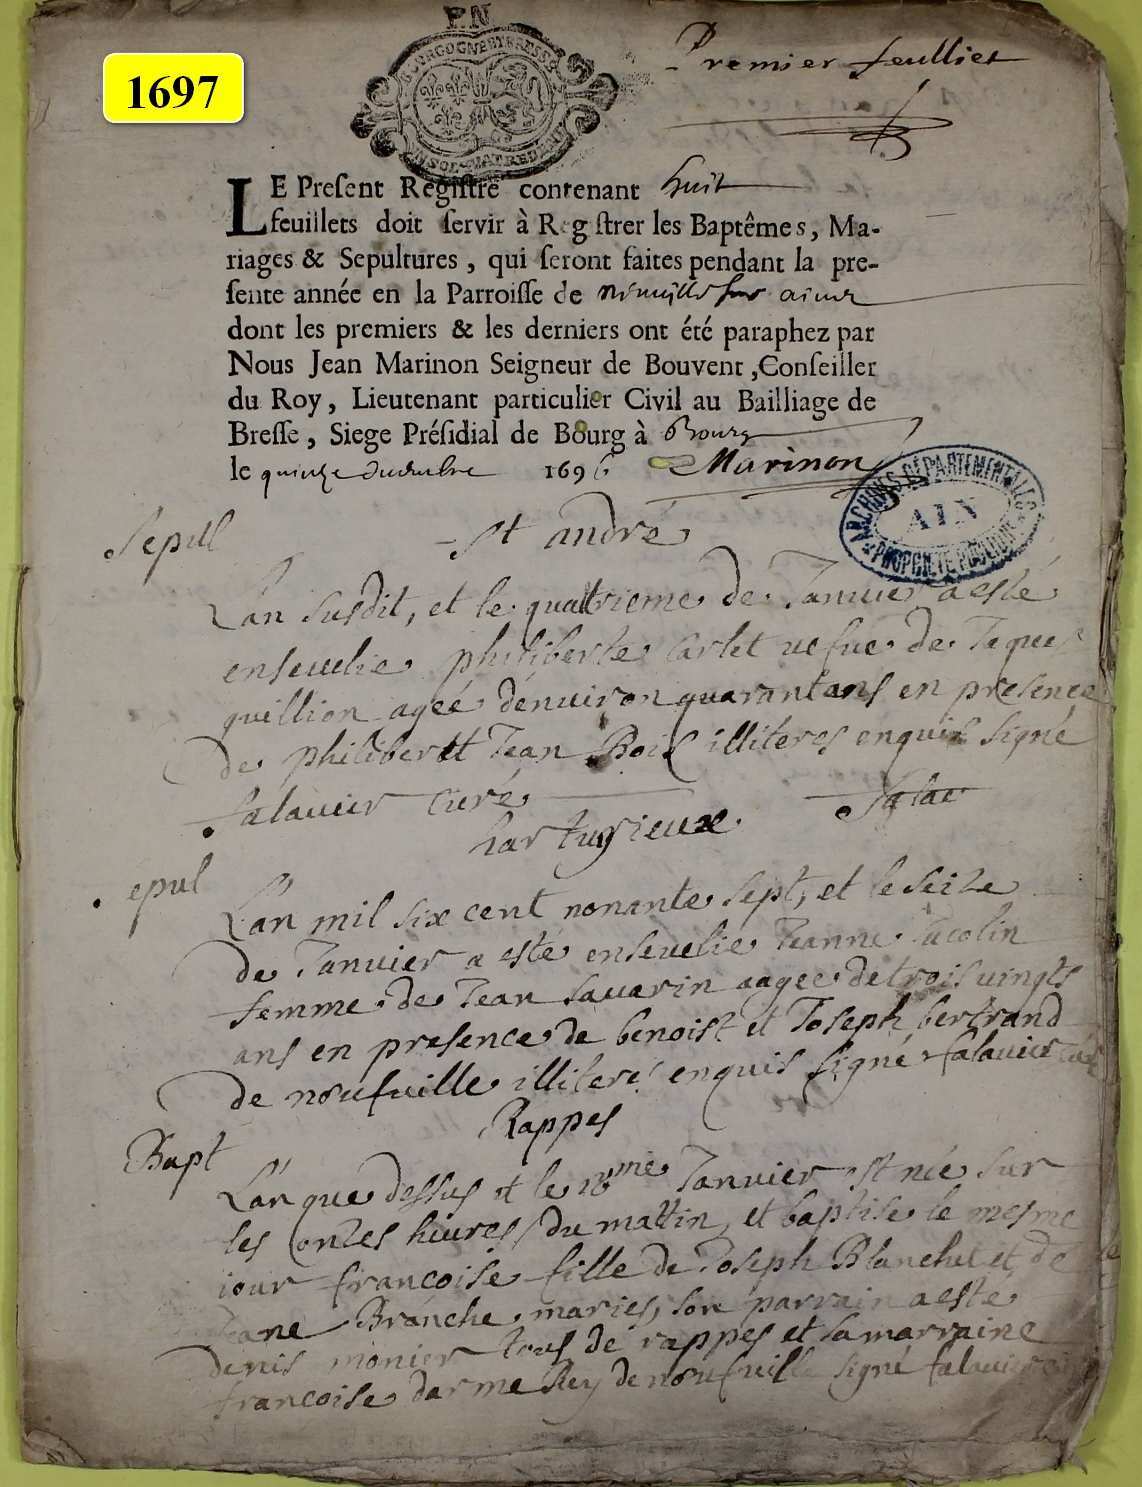 1697
P.N
BOURGOGNE ET BRESSE
Premier feulliet
LE Preſent Regiſtre contenant huit
feuillets doit ſervir à Regiſtrer les Baptêmes, Ma-
riages & Sepultures, qui ſeront faites pendant la pre-
ſente année en la Parroiſſe de
dont les premiers & les derniers ont été paraphez par
Nous Jean Marinon Seigneur de Bouvent, Conſeiller
du Roy, Lieutenant particulier Civil au Bailliage de
Breſſe, Siege Préſidial de Bourg à Bourg
le quinze 1696 Marinon
ARCHIVES DÉPARTEMENTALES
AIN
PROPRIÉTÉ PUBLIQUE
Sepul
St andré
L'an susdit, et le quattrieme de Janvier a esté
ensevelie philiberte Carlet vefue de Jaques
quillion ageé d'enuiron quarant ans en presence
de philibert et Jean Bois illiteres enquis signé
falauier Curé
Salau
harturieux
Sepul
L'an mil six cent nonante sept, et le seize
de Janvier a esté ensevelie Jeanne Jacolin
femme de Jean sauarin aagee de trois vingts
ans en presence de benoist et Joseph bertrand
de noufuille illiteré enquis signé falauier
Rappes
Bapt
L'an que dessus et le me Janvier est née sur
les onzes heures du mattin, et baptise le mesme
iour francoise fille de Joseph Blanchet et de
Jeane Branche maries, son parrain a esté
denis monier tous de rappes et sa marraine
francoise darme Rey de noufuille signé falauier